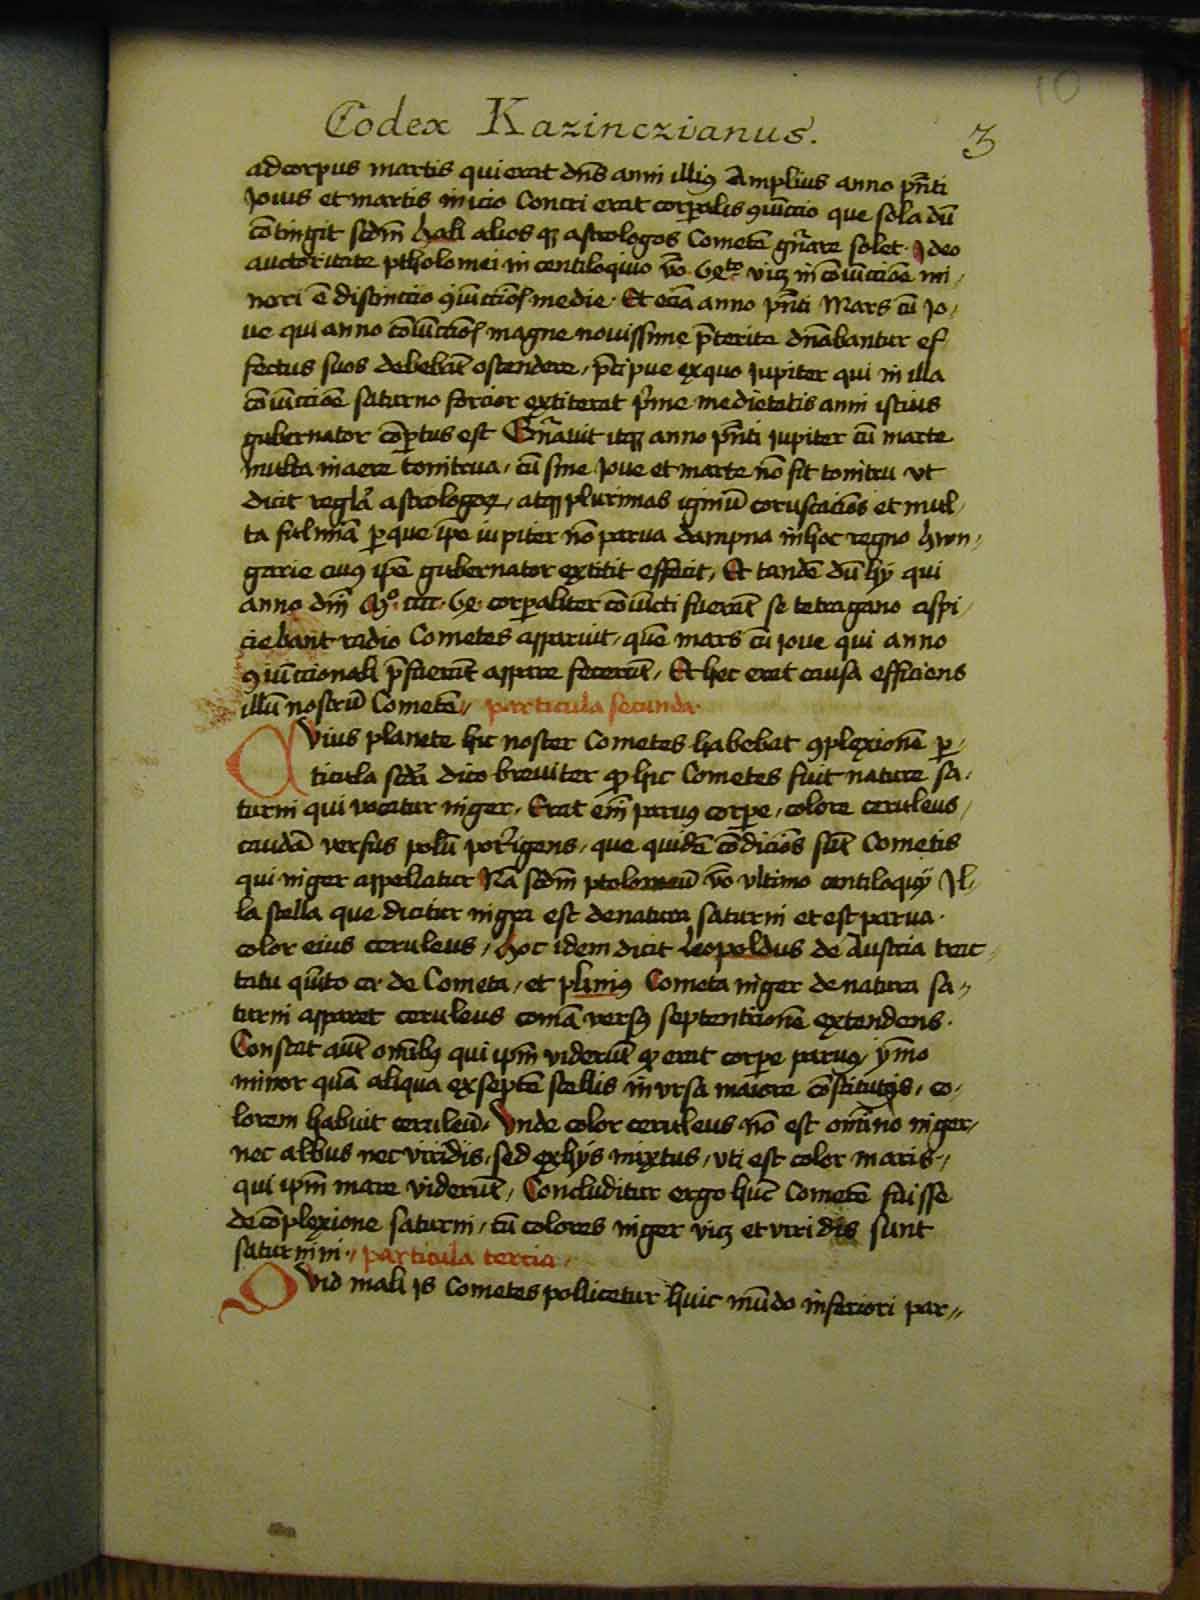 10
Codex Kazinczianus.
3
ad corpus martis qui erat dñs anni illiꝰ Amplius anno pñti
Jouis et martis inicio Concri erat corꝑalis ꝯiũccio que sola dũ
cõtingit scdm̃ hali alios qꝫ astrologos Cometẽ gñare solet. Ideo
auctoritate ptholomei in centiloquio võ viꝫ in cõiuncciõe mi
nori ẽ distinctio medie. Et eciã anno pñti Mars cũ Jo,
ue qui anno magne nouissime p̃terite dñabantur ef
fectus suos debebãt ostendere, p̃cipue ex quo Jupiter qui in illa
cõiunccioẽ saturno forcior extiterat p̃me medietatis anni istius
gubernator est Gñauit itaqꝫ anno pñti Jupiter cũ marte
multa in aere tonitrua, cũ sine Joue et marte nõ fit tonitru vt
dicit astrologoꝝ, atqꝫ plurimas igniũ coruscaciões et mul,
ta fulmĩa ꝑ que ip̃e iupiter nõ parua dampna in hoc regno hwn,
garie cuiꝰ ip̃e gubernator extitit effecit, Et tandẽ dũ hy qui
anno dñi corꝑaliter cõiũcti fuerãt se tetragano aspi,
ciebant radio Cometes apparuit, quẽ mars cũ ioue qui anno
ꝯiũccionali p̃fuerũt appare fecerũt, Et hec erat causa efficiens
illũ nostrũ Cometẽ, particula secunda.
Cuius planete hic noster Cometes habebat ꝯplexionẽ ꝑ,
ticula scda dico breuiter ꝙ hic Cometes fuit nature sa,
turni qui vocatur niger, Erat em̃ paruꝰ corꝑe, colore ceruleus,
caudã versus polũ porrigens, que quidẽ cõdiciões sũt Cometis
qui niger appellatur Nã scdm̃ ptolomeũ vo vltimo centiloquij Jl,
la stella que dicitur nigra est de natura saturni et est parua.
color eius ceruleus, hoc idem dicit Leopoldus de Austria trac
tatu qũto de Cometa, et pliniꝰ Cometa niger de natura sa,,
turni apparet ceruleus comã versꝰ septentrionẽ extendens.
Constat aũt omĩbꝰ qui ipm̃ viderũt ꝙ erat corꝑe paruꝰ, ymo
minor quã aliqua ex septẽ stellis in vrsa maiore cõstitutis, co,
lorem habuit ceruleũ. Vnde color ceruleus nõ est om̃ino niger,
nec albus nec viridis, sed ex hijs mixtus, vti est color maris,
qui ipm̃ mare viderũt, Concluditur ergo hũc Cometẽ fuisse
de cõplexione saturni, cũ colores niger viꝫ et viridis sunt
saturnini, particula tercia,
Quid mali is Cometes pollicetur huic mũdo inferiori par,,